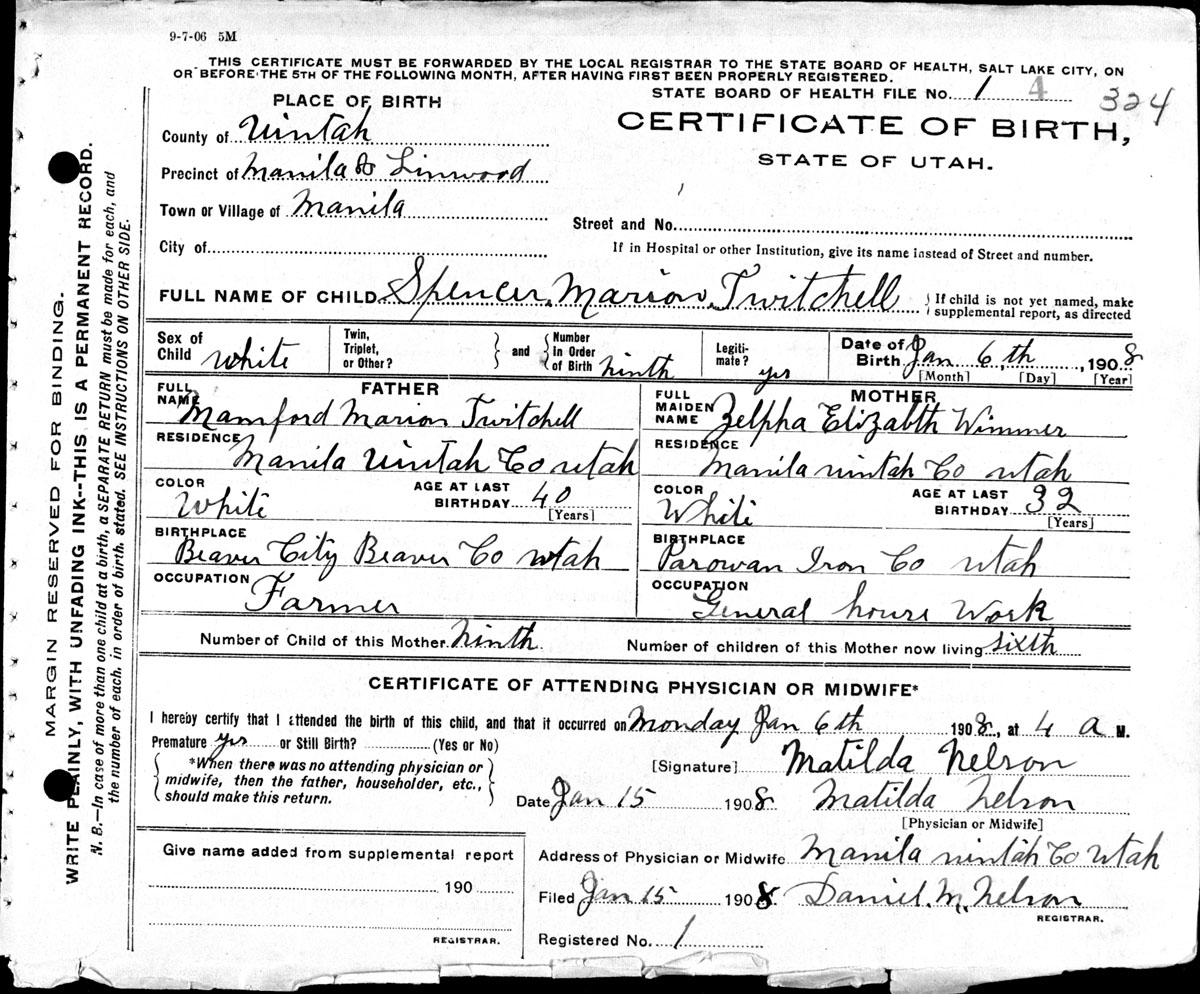 9-7-06 5M
THIS CERTIFICATE MUST BE FORWARDED BY THE LOCAL REGISTRAR TO THE STATE BOARD OF HEALTH, SALT LAKE CITY, ON
OR BEFORE THE 5TH OF THE FOLLOWING MONTH, AFTER HAVING FIRST BEEN PROPERLY REGISTERED.
STATE BOARD OF HEALTH FILE No. 1 4 324
PLACE OF BIRTH
CERTIFICATE OF BIRTH,
STATE OF UTAH.
County of Uintah
Precinct of Manila & Linwood
Town or Village of Manila
Street and No.
City of
If in Hospital or other Institution, give its name instead of Street and number.
FULL NAME OF CHILD Spencer Marion Twitchell
If child is not yet named, make
supplemental report, as directed
Sex of Child White
Twin, Triplet, or Other?
and
Number In Order of Birth ninth
Legiti-mate? yes
Date of Birth Jan 6,th, 1908
[Month] [Day] [Year]
FATHER
FULL NAME Mamford Marion Twitchell
RESIDENCE Manila Uintah Co utah
COLOR White
AGE AT LAST BIRTHDAY 40
[Years]
BIRTHPLACE
Beaver City Beaver Co utah
OCCUPATION Farmer
MOTHER
FULL MAIDEN NAME Zelpha Elizabth Wimmer
RESIDENCE Manila uintah Co utah
COLOR White
AGE AT LAST BIRTHDAY 32
[Years]
BIRTHPLACE
Parowan Iron Co utah
OCCUPATION General house Work
Number of Child of this Mother Ninth
Number of children of this Mother now living sixth
CERTIFICATE OF ATTENDING PHYSICIAN OR MIDWIFE*
I hereby certify that I attended the birth of this child, and that it occurred on Monday Jan 6th 1908, at 4 a M.
Premature yes or Still Birth? (Yes or No)
*When there was no attending physician or
midwife, then the father, householder, etc.,
should make this return.
[Signature] Matilda Nelson
Date Jan 15 1908. Matilda Nelson
[Physician or Midwife]
Give name added from supplemental report
190
REGISTRAR.
Address of Physician or Midwife Manila uintah Co Utah
Filed Jan 15 1908. Daniel. M. Nelson
REGISTRAR.
Registered No. 1
MARGIN RESERVED FOR BINDING.
WRITE PLAINLY, WITH UNFADING INK--THIS IS A PERMANENT RECORD.
N. B.—In case of more than one child at a birth, a SEPARATE RETURN must be made for each, and
the number of each, in order of birth, stated. SEE INSTRUCTIONS ON OTHER SIDE.